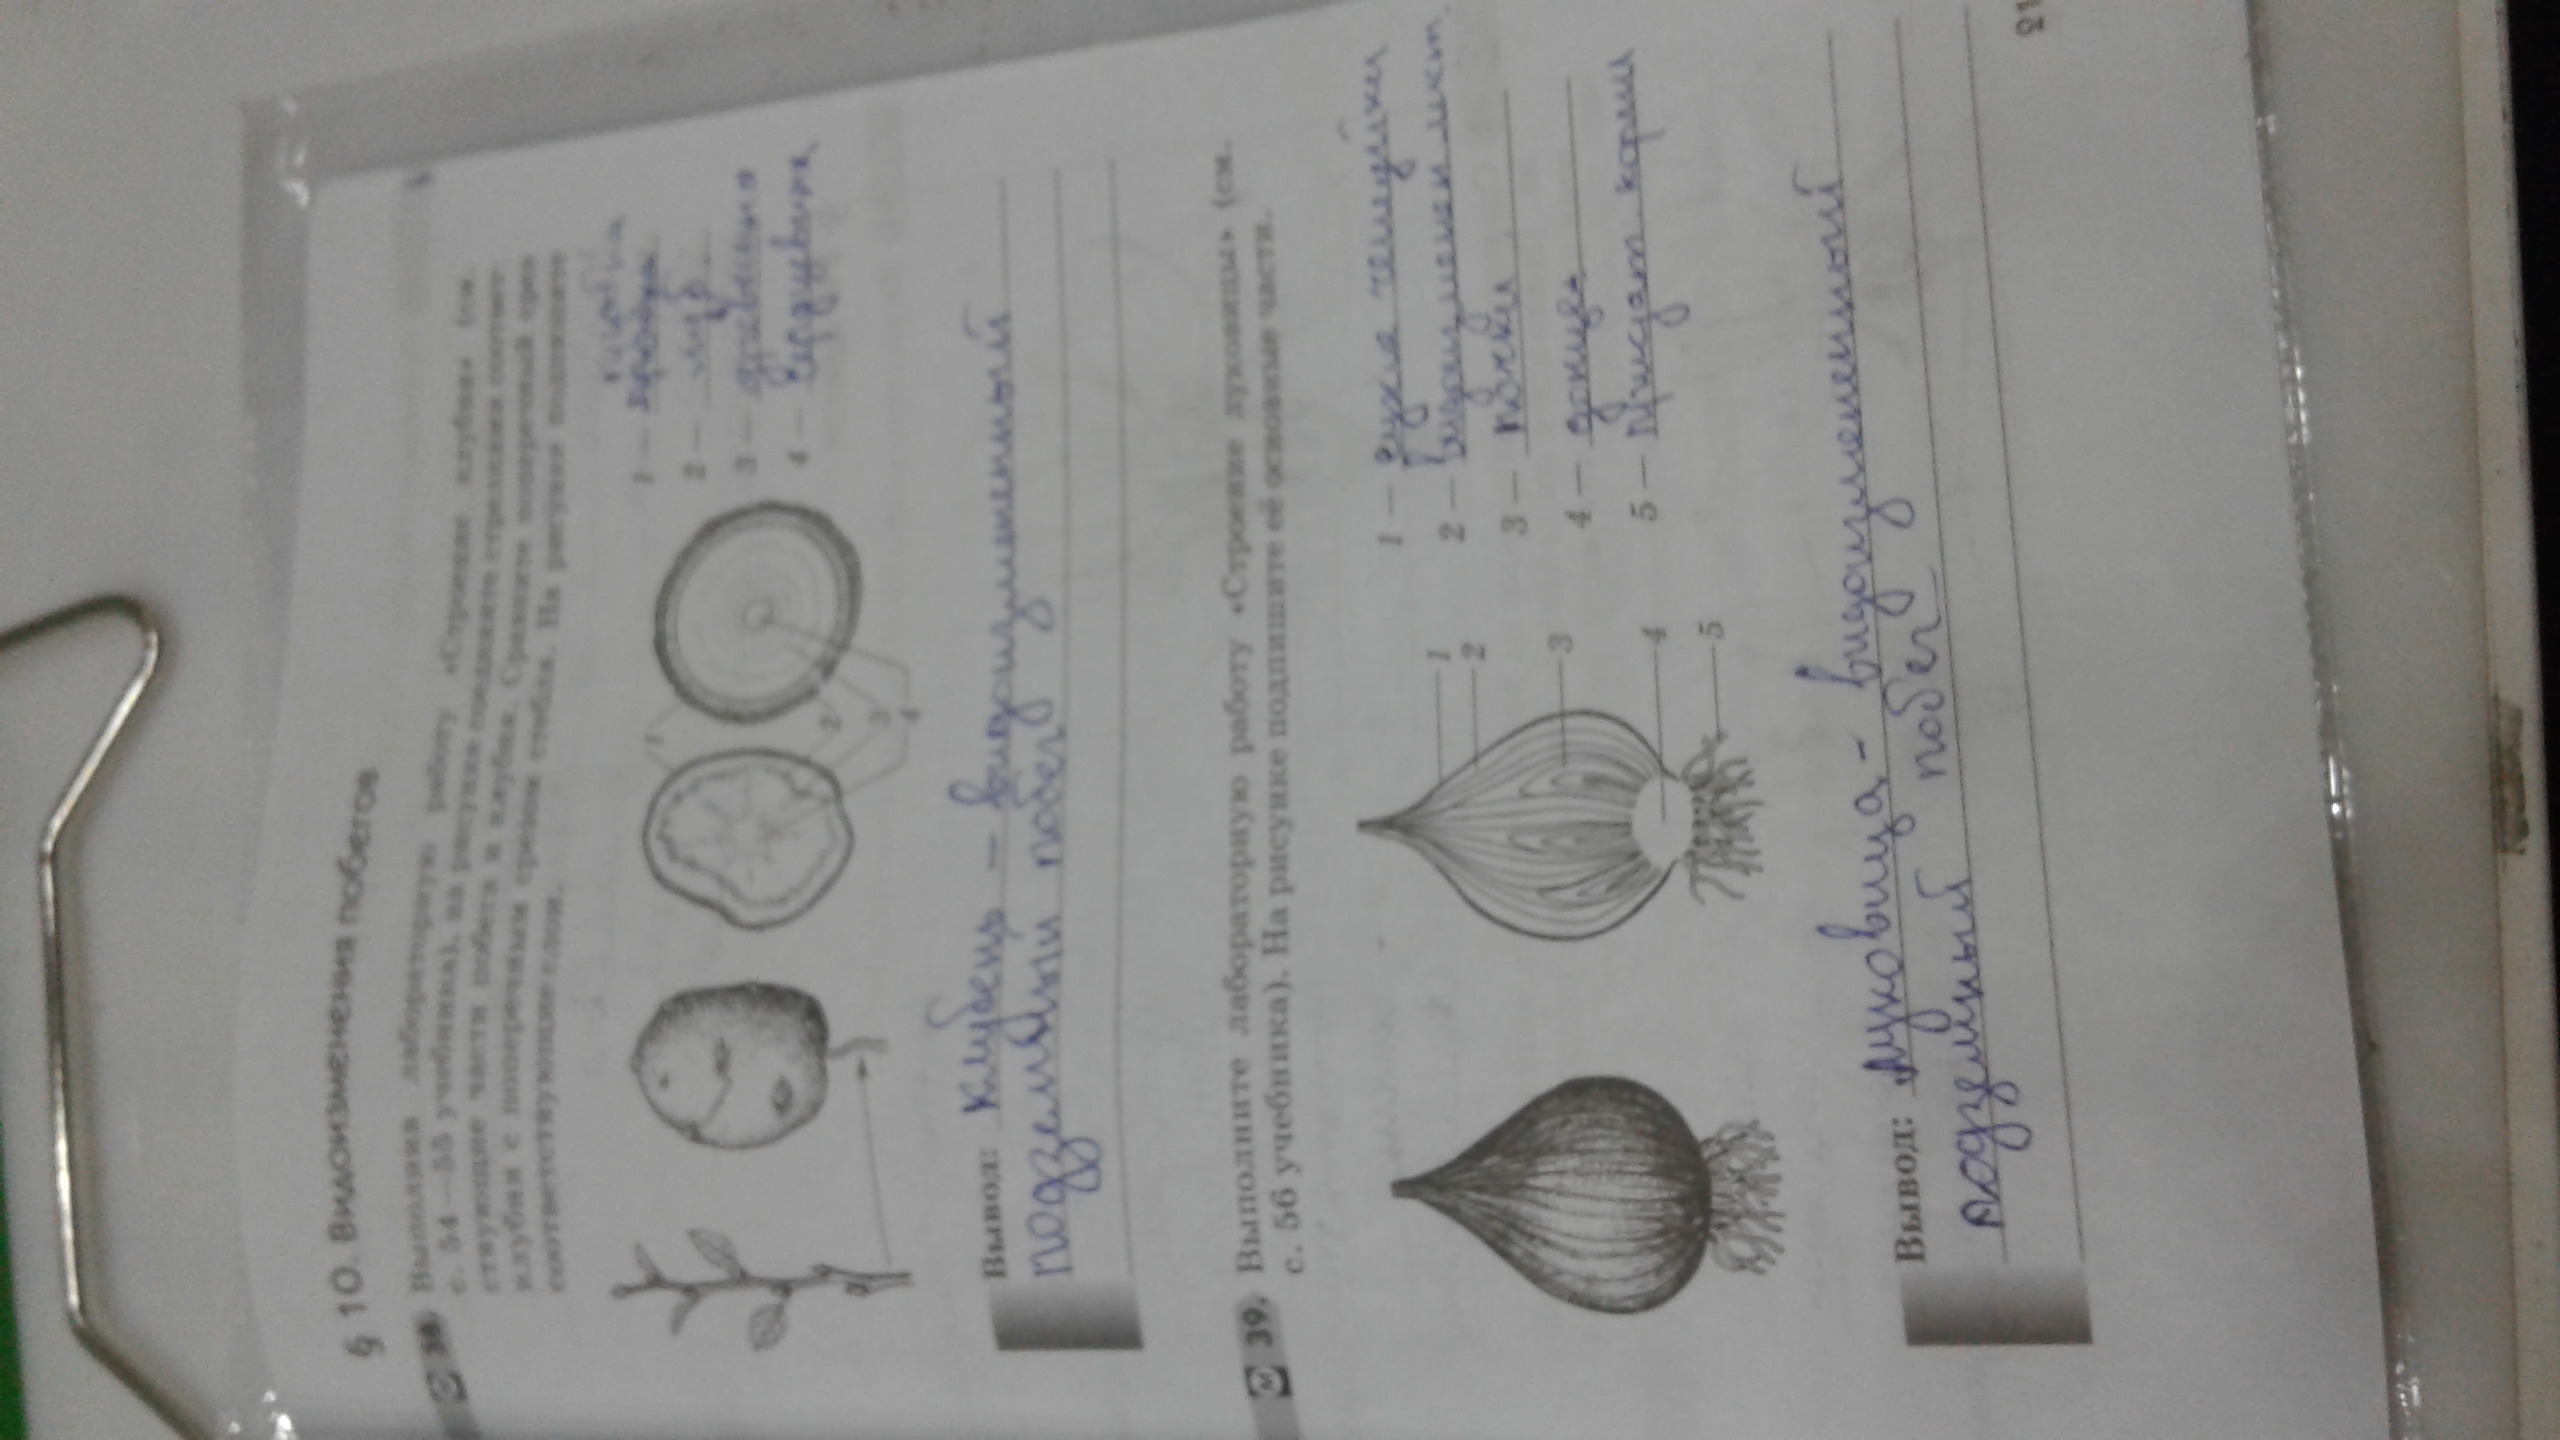 § 10. Видоизменения побегов
38. Выполнив лабораторную работу «Строение клубня» (см.
с. 54—55 учебника), на рисунке соедините стрелками соответ-
ствующие части побега и клубня. Сравните поперечный срез
клубня с поперечным срезом стебля. На рисунке подпишите
соответствующие слои.
1 —
2 — луб
3 — древесина
4 — сердцевина
1
2
3
4
Вывод: Клубень – видоизмененный
подземный побег
39. Выполните лабораторную работу «Строение луковицы» (см.
с. 56 учебника). На рисунке подпишите её основные части.
1
2
3
4
5
1 — сухие чешуйки
2 — видоизменен лист.
3 — почки
4 — донце
5 — придат корни
Вывод: Луковица - видоизмененный
подземный побег
21